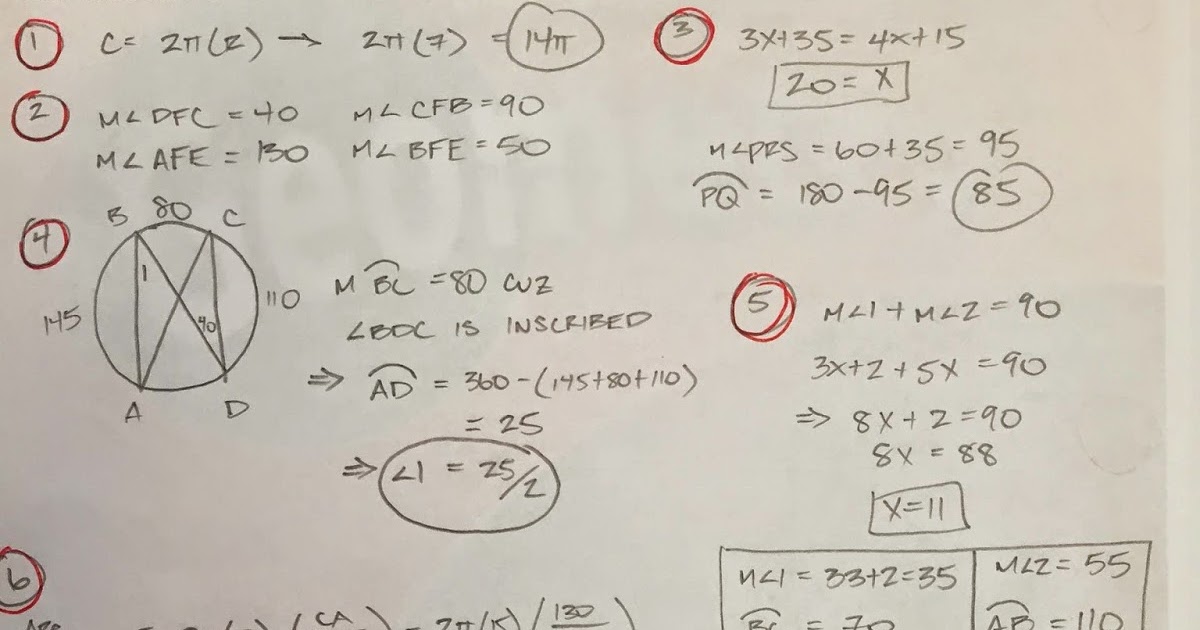 1 C = 2π(r) → 2π(7) = 14π
2 M∠DFC = 40 M∠CFB = 90
M∠AFE = 130 M∠BFE = 50
3 3X+35 = 4X+15
20 = X
M∠PRS = 60+35 = 95
PQ = 180-95 = 85
4 B 80 C
1
145 40 110
A D
M BC = 80 CUZ
∠BDC IS INSCRIBED
⇒ AD = 360-(145+80+110)
= 25
⇒ ∠1 = 25/2
5 M∠1 + M∠2 = 90
3X+2+5X = 90
⇒ 8X+2 = 90
8X = 88
X=11
M∠1 = 33+2=35 M∠2 = 55
BC = 70 AB = 110
6
130